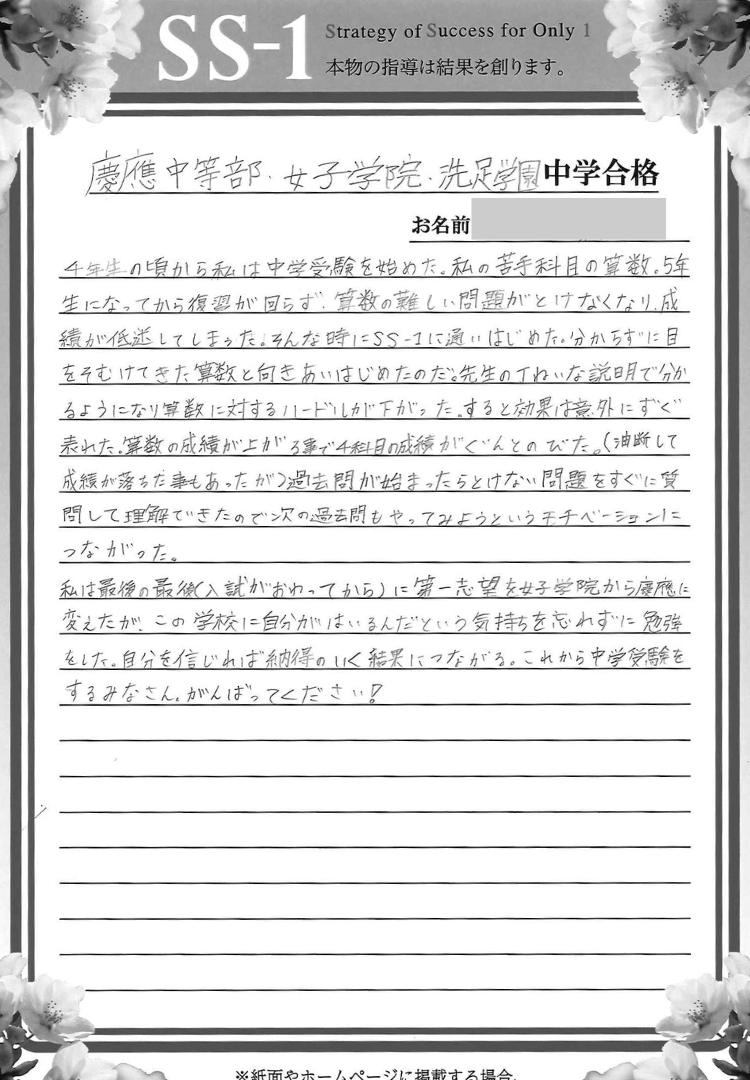 SS-1
Strategy of Success for Only 1
本物の指導は結果を創ります。
慶應中等部・女子学院・洗足学園中学合格
お名前
4年生の頃から私は中学受験を始めた。私の苦手科目の算数。5年
生になってから復習が回らず、算数の難しい問題がとけなくなり、成
績が低迷してしまった。そんな時にSS-1に通いはじめた。分からずに目
をそむけてきた算数と向きあいはじめたのだ。先生の丁ねいな説明で分か
るようになり算数に対するハードルが下がった。すると効果は意外にすぐ
表れた。算数の成績が上がる事で4科目の成績がぐんとのびた。(油断して
成績が落ちた事もあったが)過去問が始まったらとけない問題をすぐに質
問して理解できたので次の過去問もやってみようというモチベーションに
つながった。
私は最後の最後(入試がおわってから)に第一志望を女子学院から慶應に
変えたが、この学校に自分がはいるんだという気持ちを忘れずに勉強
をした。自分を信じれば納得のいく結果につながる。これから中学受験を
するみなさん。がんばってください!
※紙面やホームページに掲載する場合、